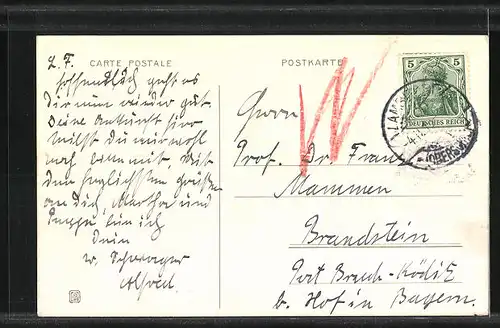 CARTE POSTALE
POSTKARTE
L. F.
hoffentlich geht es
Dir nun wieder gut.
Deine Ankunft hier
willst Du mir wohl
noch
den herzlichsten Grüßen
an Dich, Martha und
Puppe, bin ich
Dein
Schwager
Alfred.
5
5
DEUTSCHES REICH
Herrn
Prof. Dr. Franz
Mammen
Brandstein
Post
b. Hof in Bayern.